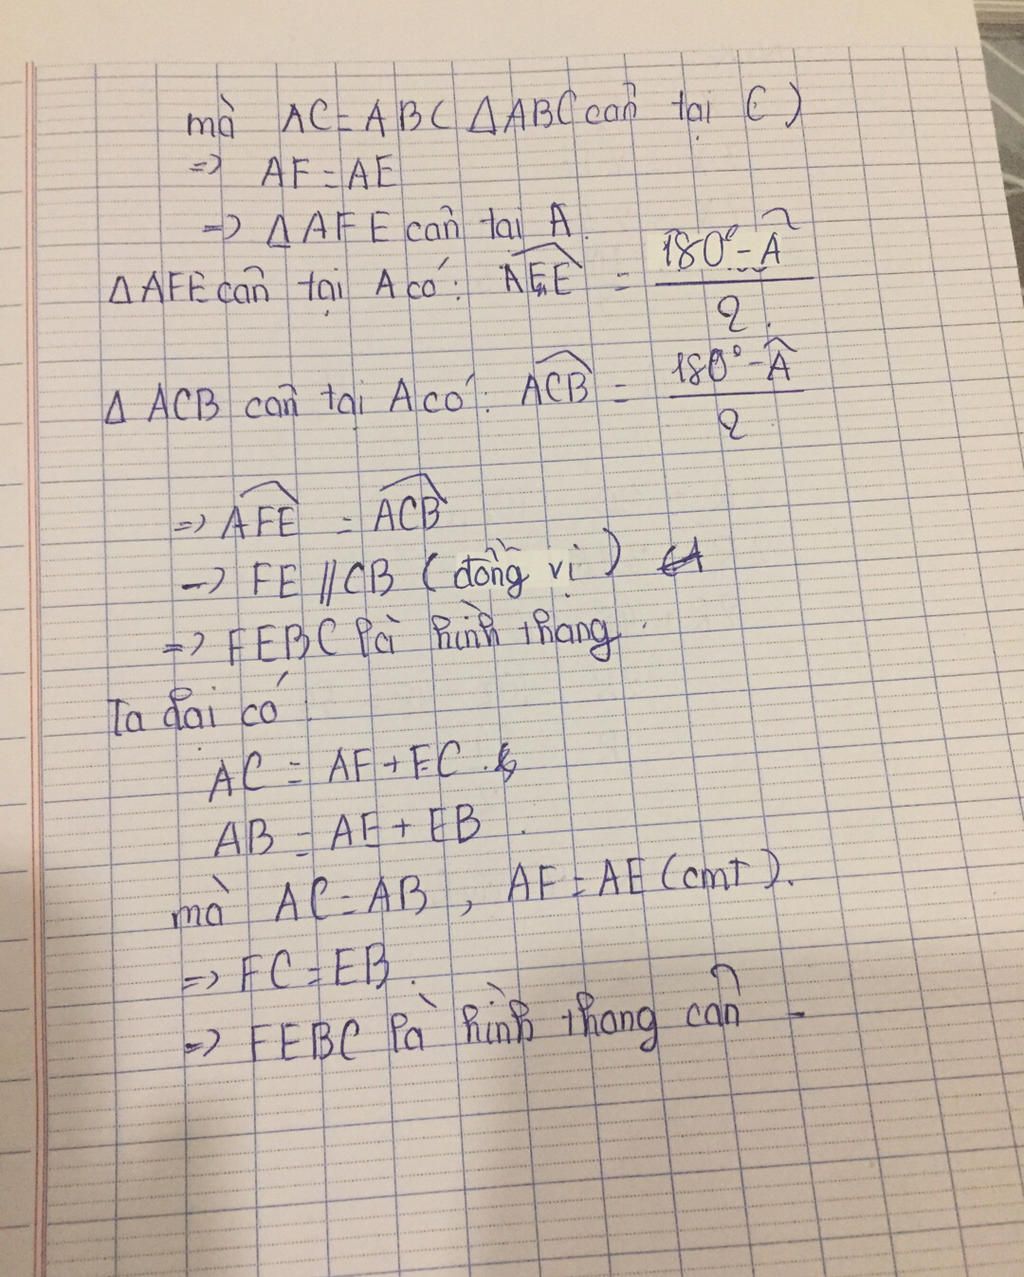 mà AC = AB ( Δ ABC cân tại C )
=> AF = AE
=> Δ AFE cân tại A.
Δ AFE cân tại A có: AFE = 180° - Â / 2.
Δ ACB cân tại A có: ACB = 180° - Â / 2
=> AFE = ACB
=> FE // CB ( đồng vị )
=> FEBC là hình thang.
Ta lại có
AC = AF + FC.
AB = AE + EB.
mà AC = AB , AF = AE (cmt).
=> FC = EB.
=> FEBC là hình thang cân -